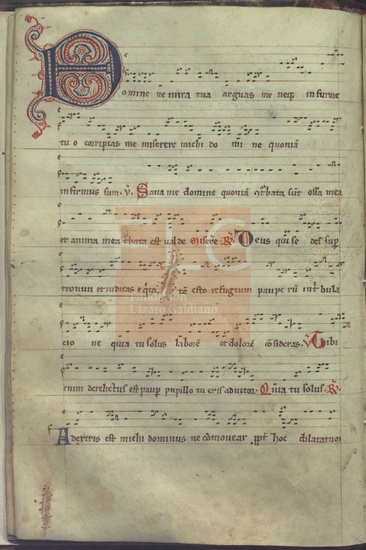 Domine ne in ira tua arguas me neqʒ in furore
tuo corripias me miserere michi do mi ne quoniā
infirmus sum. V. Sana me domine quoniā 9t̄bata sūt ossa mea
et anima mea t̄bata est valde Misere R. Deus qui se des sup
tronum et iudicas e qta tē esto refugium paupe rū int̄bula
cio ne quia tu solus laborē et dolorē cōsideras. V Tibi
enim derelictus est paup̄ pupillo tu eris adiutor. Quia tu solus. R.
A dextris est michi dominus ne cōmovear, ppt̄ hoc dilatatum